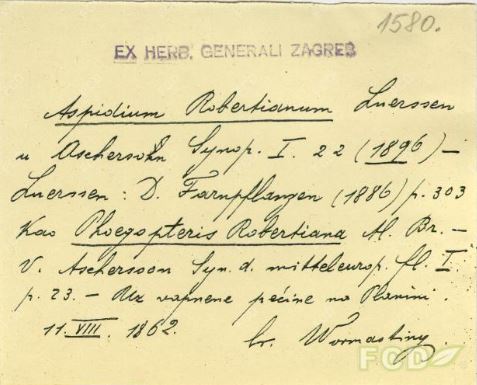 1580.
EX HERB. GENERALI ZAGREB
Aspidium Robertianum Luerssen
u Aschersohn Synop. I. 22 (1896) –
Luerssen : D. Farnpflanzen (1886) p. 303
Kao Phoegopteris Robertiana Al. Br. –
V. Aschersoon Syn. d. mitteleurop. fl. I.
p. 23. – Uz vapnene pećine na Planini.
11. VIII. 1862.
FCD